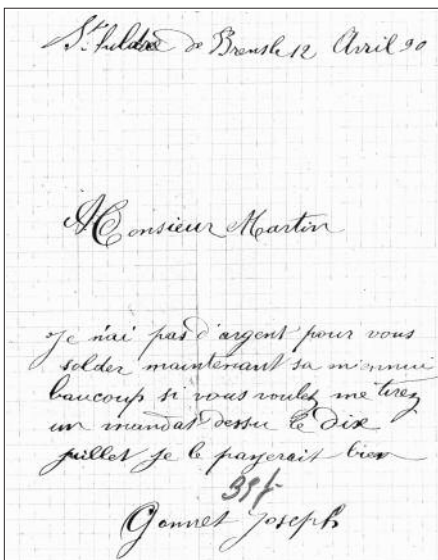 Ste de Bresle 12 Avril 90
Monsieur Martin
Je n'ai pas d'argent pour vous
solder maintenant sa m'ennui
baucoup si vous voulez me tirez
un mandat dessu le dix
juillet je le payerait bien
Gonnet Joseph